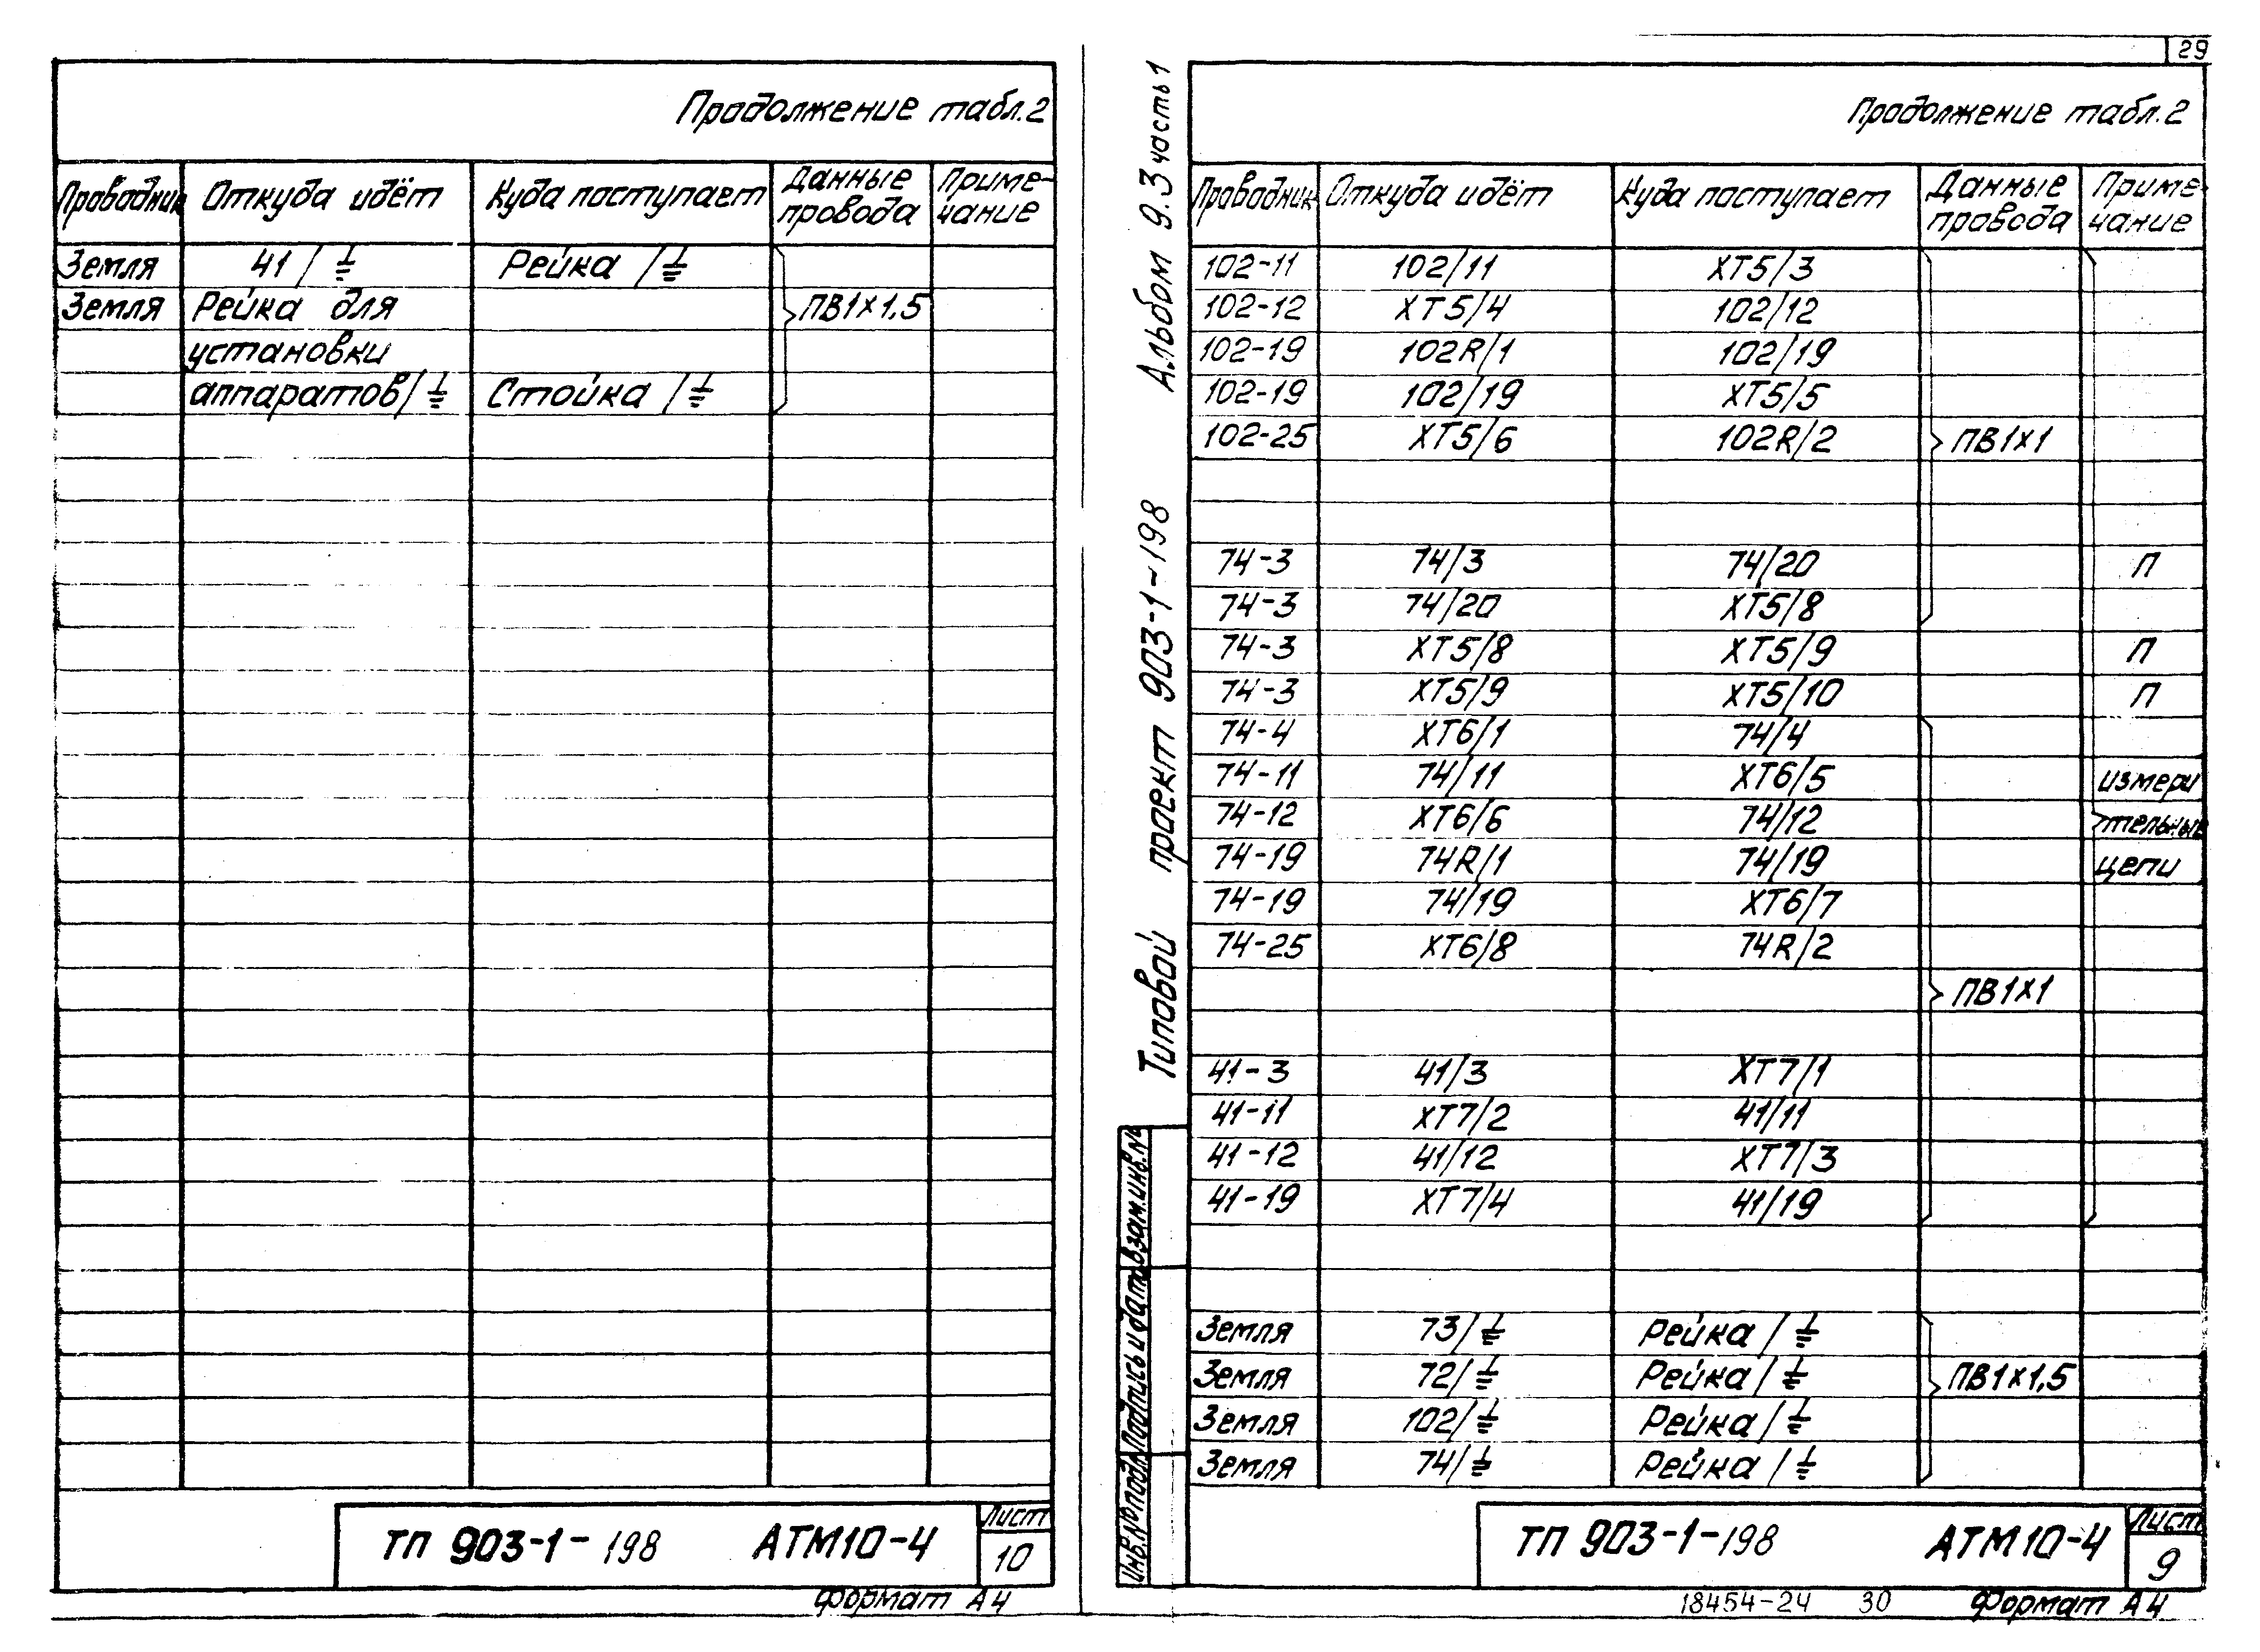 Продолжение табл.2
Проводник Откуда идёт Куда поступает Данные провода Приме-чание
Земля 41/⏚ Рейка/⏚
Земля Рейка для ПВ1х1,5
установки
аппаратов/⏚ Стойка/⏚
ТП 903-1-198 АТМ10-4 Лист 10
Формат А4
29
Альбом 9.3 часть 1
Типовой проект 903-1-198
Продолжение табл.2
Проводник Откуда идёт Куда поступает Данные провода Приме-чание
102-11 102/11 ХТ5/3
102-12 ХТ5/4 102/12
102-19 102R/1 102/19
102-19 102/19 ХТ5/5
102-25 ХТ5/6 102R/2 ПВ1х1
74-3 74/3 74/20 П
74-3 74/20 ХТ5/8
74-3 ХТ5/8 ХТ5/9 П
74-3 ХТ5/9 ХТ5/10 П
74-4 ХТ6/1 74/4
74-11 74/11 ХТ6/5 измери
74-12 ХТ6/6 74/12 тельные
74-19 74R/1 74/19 цепи
74-19 74/19 ХТ6/7
74-25 ХТ6/8 74R/2
ПВ1х1
41-3 41/3 ХТ7/1
41-11 ХТ7/2 41/11
41-12 41/12 ХТ7/3
41-19 ХТ7/4 41/19
Земля 73/⏚ Рейка/⏚
Земля 72/⏚ Рейка/⏚ ПВ1х1,5
Земля 102/⏚ Рейка/⏚
Земля 74/⏚ Рейка/⏚
Инв.№подл. Подпись и дата Взам.инв.№
ТП 903-1-198 АТМ10-4 Лист 9
18454-24 30 Формат А4